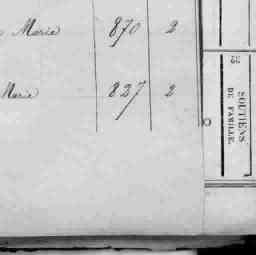 Marie 870 2
Marie 827 2
32
SOUTIENS
DE FAMILLE.